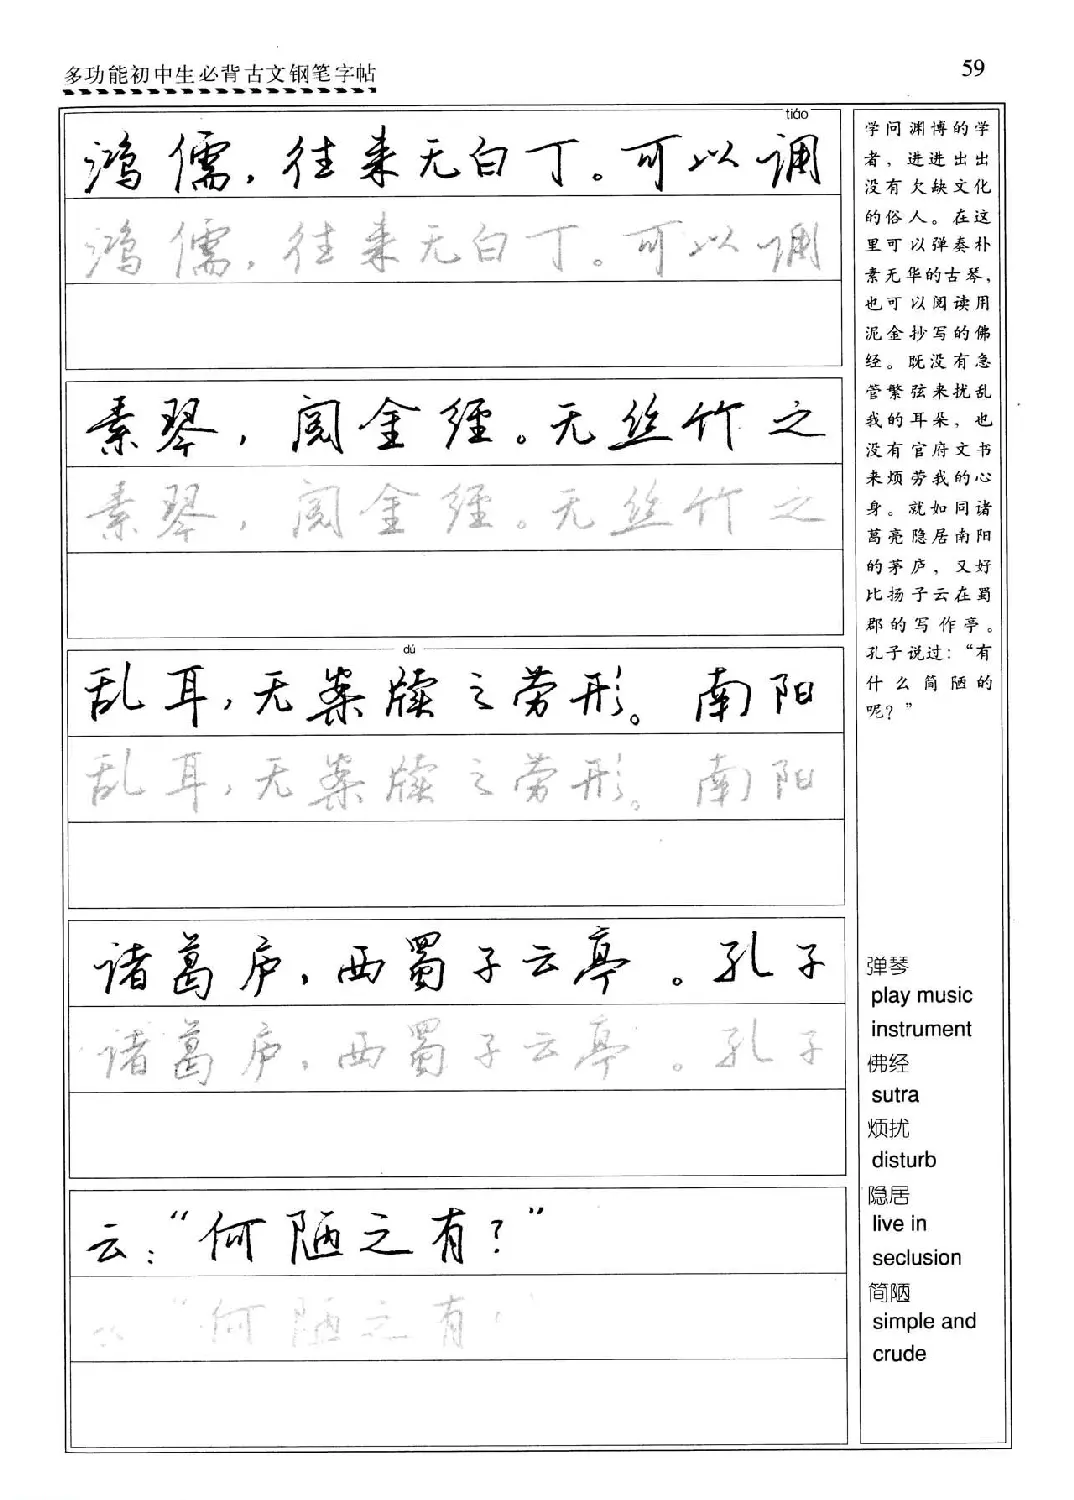 多功能初中生必背古文钢笔字帖
59
tiáo
鸿儒，往来无白丁。可以调
鸿儒，往来无白丁。可以调
素琴，阅金经。无丝竹之
素琴，阅金经。无丝竹之
dú
乱耳，无案牍之劳形。南阳
乱耳，无案牍之劳形。南阳
诸葛庐，西蜀子云亭。孔子
诸葛庐，西蜀子云亭。孔子
云：“何陋之有？”
云“何陋之有？”
学问渊博的学
者，进进出出
没有欠缺文化
的俗人。在这
里可以弹奏朴
素无华的古琴，
也可以阅读用
泥金抄写的佛
经。既没有急
管繁弦来扰乱
我的耳朵，也
没有官府文书
来烦劳我的心
身。就如同诸
葛亮隐居南阳
的茅庐，又好
比扬子云在蜀
郡的写作亭。
孔子说过：“有
什么简陋的
呢？”
弹琴
play music
instrument
佛经
sutra
烦扰
disturb
隐居
live in
seclusion
简陋
simple and
crude